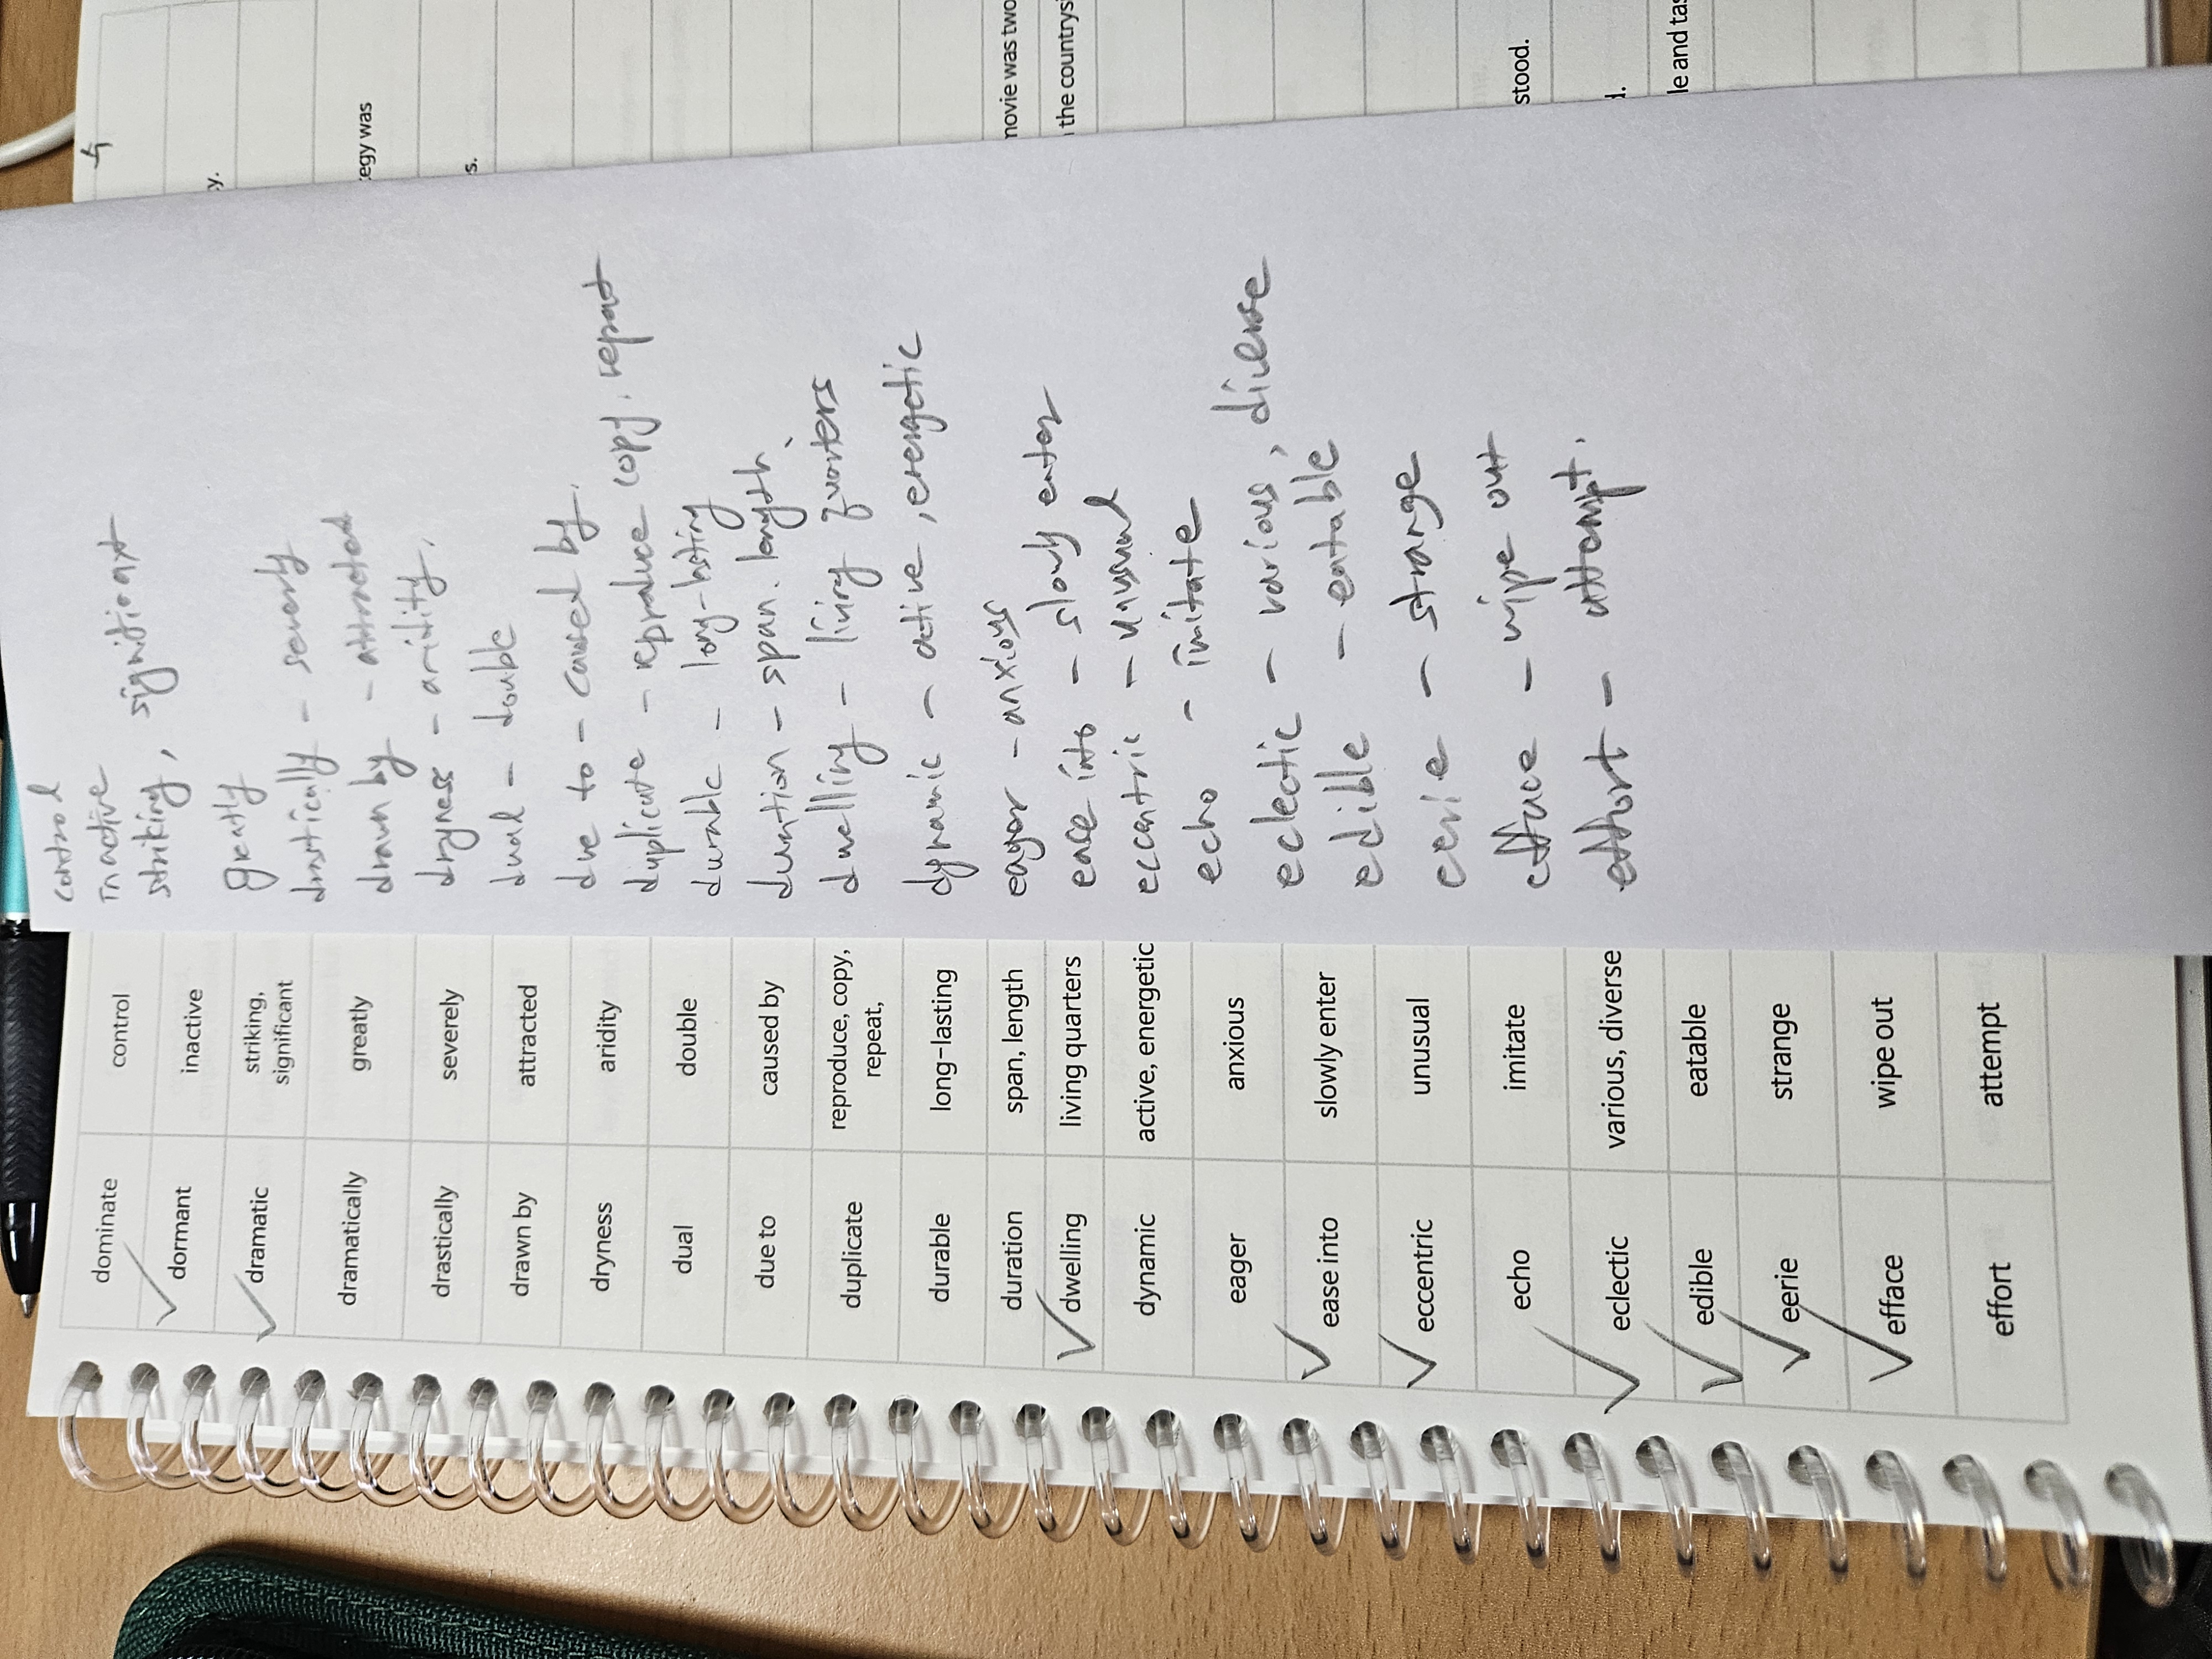 dominate control
dormant inactive
dramatic striking,
significant
dramatically greatly
drastically severely
drawn by attracted
dryness aridity
dual double
due to caused by
duplicate reproduce, copy,
repeat,
durable long-lasting
duration span, length
dwelling living quarters
dynamic active, energetic
eager anxious
ease into slowly enter
eccentric unusual
echo imitate
eclectic various, diverse
edible eatable
eerie strange
efface wipe out
effort attempt
control
inactive
striking, significant
greatly
drastically - severly
drawn by - attracted
dryness - aridity.
dual - double
due to - caused by.
duplicate - reproduce copy. repeat
durable - long-lasting
duration - span. length
dwelling - living quarters
dynamic - active, energetic
eager - anxious
ease into - slowly enter
eccentric - unusual
echo - imitate
eclectic - various, diverse
edible - eatable
eerie - strange
efface - wipe out
effort - attempt.
y.
egy was
s.
movie was two
the countrysi
stood.
d.
le and tas